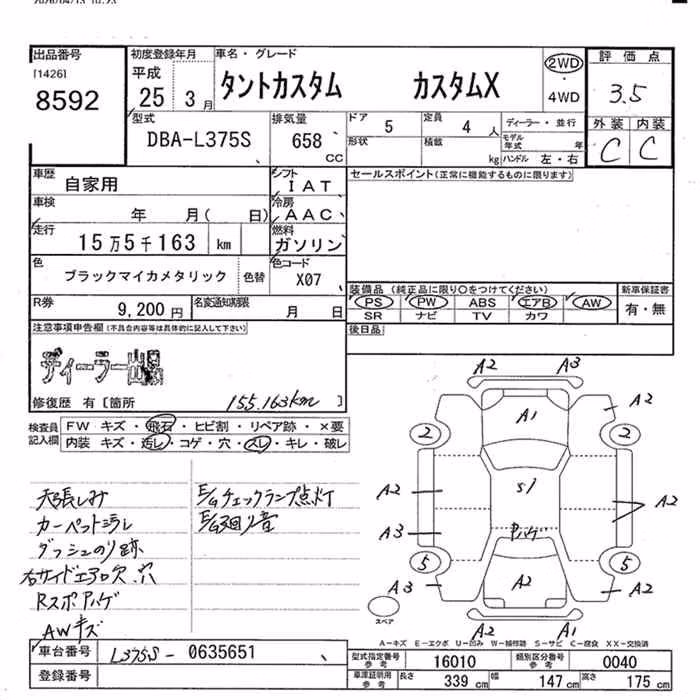 2026/04/13 10:23
出品番号
[1426]
8592
初度登録年月
平成
25 3月
車名・グレード
タントカスタム カスタムX
2WD
4WD
評価点
3.5
外装 内装
C C
型式
DBA-L375S
排気量
658
CC
ドア
5
定員
4人
ディーラー・並行
形状
積載
kg
モデル年式
年
ハンドル 左・右
車歴
自家用
シフト
IAT
セールスポイント(正常に機能するものに限ります)
車検
年 月( 日)
冷房
AAC
走行
15万5千163 km
燃料
ガソリン
色
ブラックマイカメタリック
色替
色コード
X07
装備品(純正品に限り○をつけてください)
PS PW ABS エアB AW
SR ナビ TV カワ
新車保証書
有・無
R券
9,200円
名変通知期限
月 日
後日品
注意事項申告欄(不具合内容等は具体的に記入して下さい)
ディーラー出品
修復歴 有 [箇所
155.163km]
検査員記入欄
FW キズ・飛石・ヒビ割・リペア跡・×要
内装 キズ・汚レ・コゲ・穴・スレ・キレ・破レ
天張しみ
カーペットミラレ
ダッシュのり跡
右サイドエアロ欠.穴
Rスポハゲ
AWキズ
E/Gチェックランプ点灯
E/G廻り音
A2 A3
A2 A1 A2
2 2
A2 S1 A2
A3 Pハゲ
5 5
A3 A2 A2
A2 A1
スペア
A-キズ E-エクボ U-凹み W-補修跡 S-サビ C-腐食 XX-交換済
車台番号
L375S- 0635651
登録番号
型式指定番号
参考
16010
類別区分番号
参考
0040
車庫証明用
参考
長さ 339cm
幅 147cm
高さ 175cm